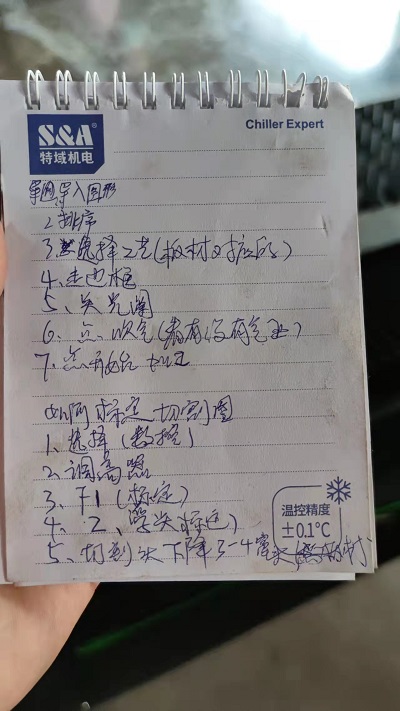 S&A®
特域机电
Chiller Expert
导入图形
2 排序
3. 选择工艺(板材对应的)
4、走边框
5、关光闸
6、点、吹气(看有没有气压)
7、点开始加工
如何标定切割图
1、选择(数控)
2、调高器
3、F1(标定)
4、2、(浮头标定)
5、切割头下降3-4毫米
温控精度
±0.1℃